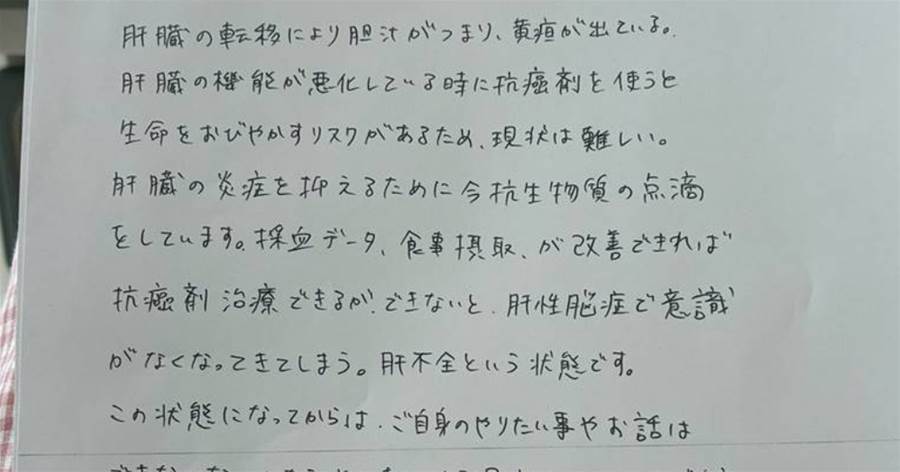 肝臓の転移により胆汁がつまり、黄疸が出ている。
肝臓の機能が悪化している時に抗癌剤を使うと
生命をおびやかすリスクがあるため、現状は難しい。
肝臓の炎症を抑えるために今抗生物質の点滴
をしています。採血データ、食事摂取、が改善できれば
抗癌剤治療できるが、できないと、肝性脳症で意識
がなくなってきてしまう。肝不全という状態です。
この状態になってからは、ご自身のやりたい事やお話は